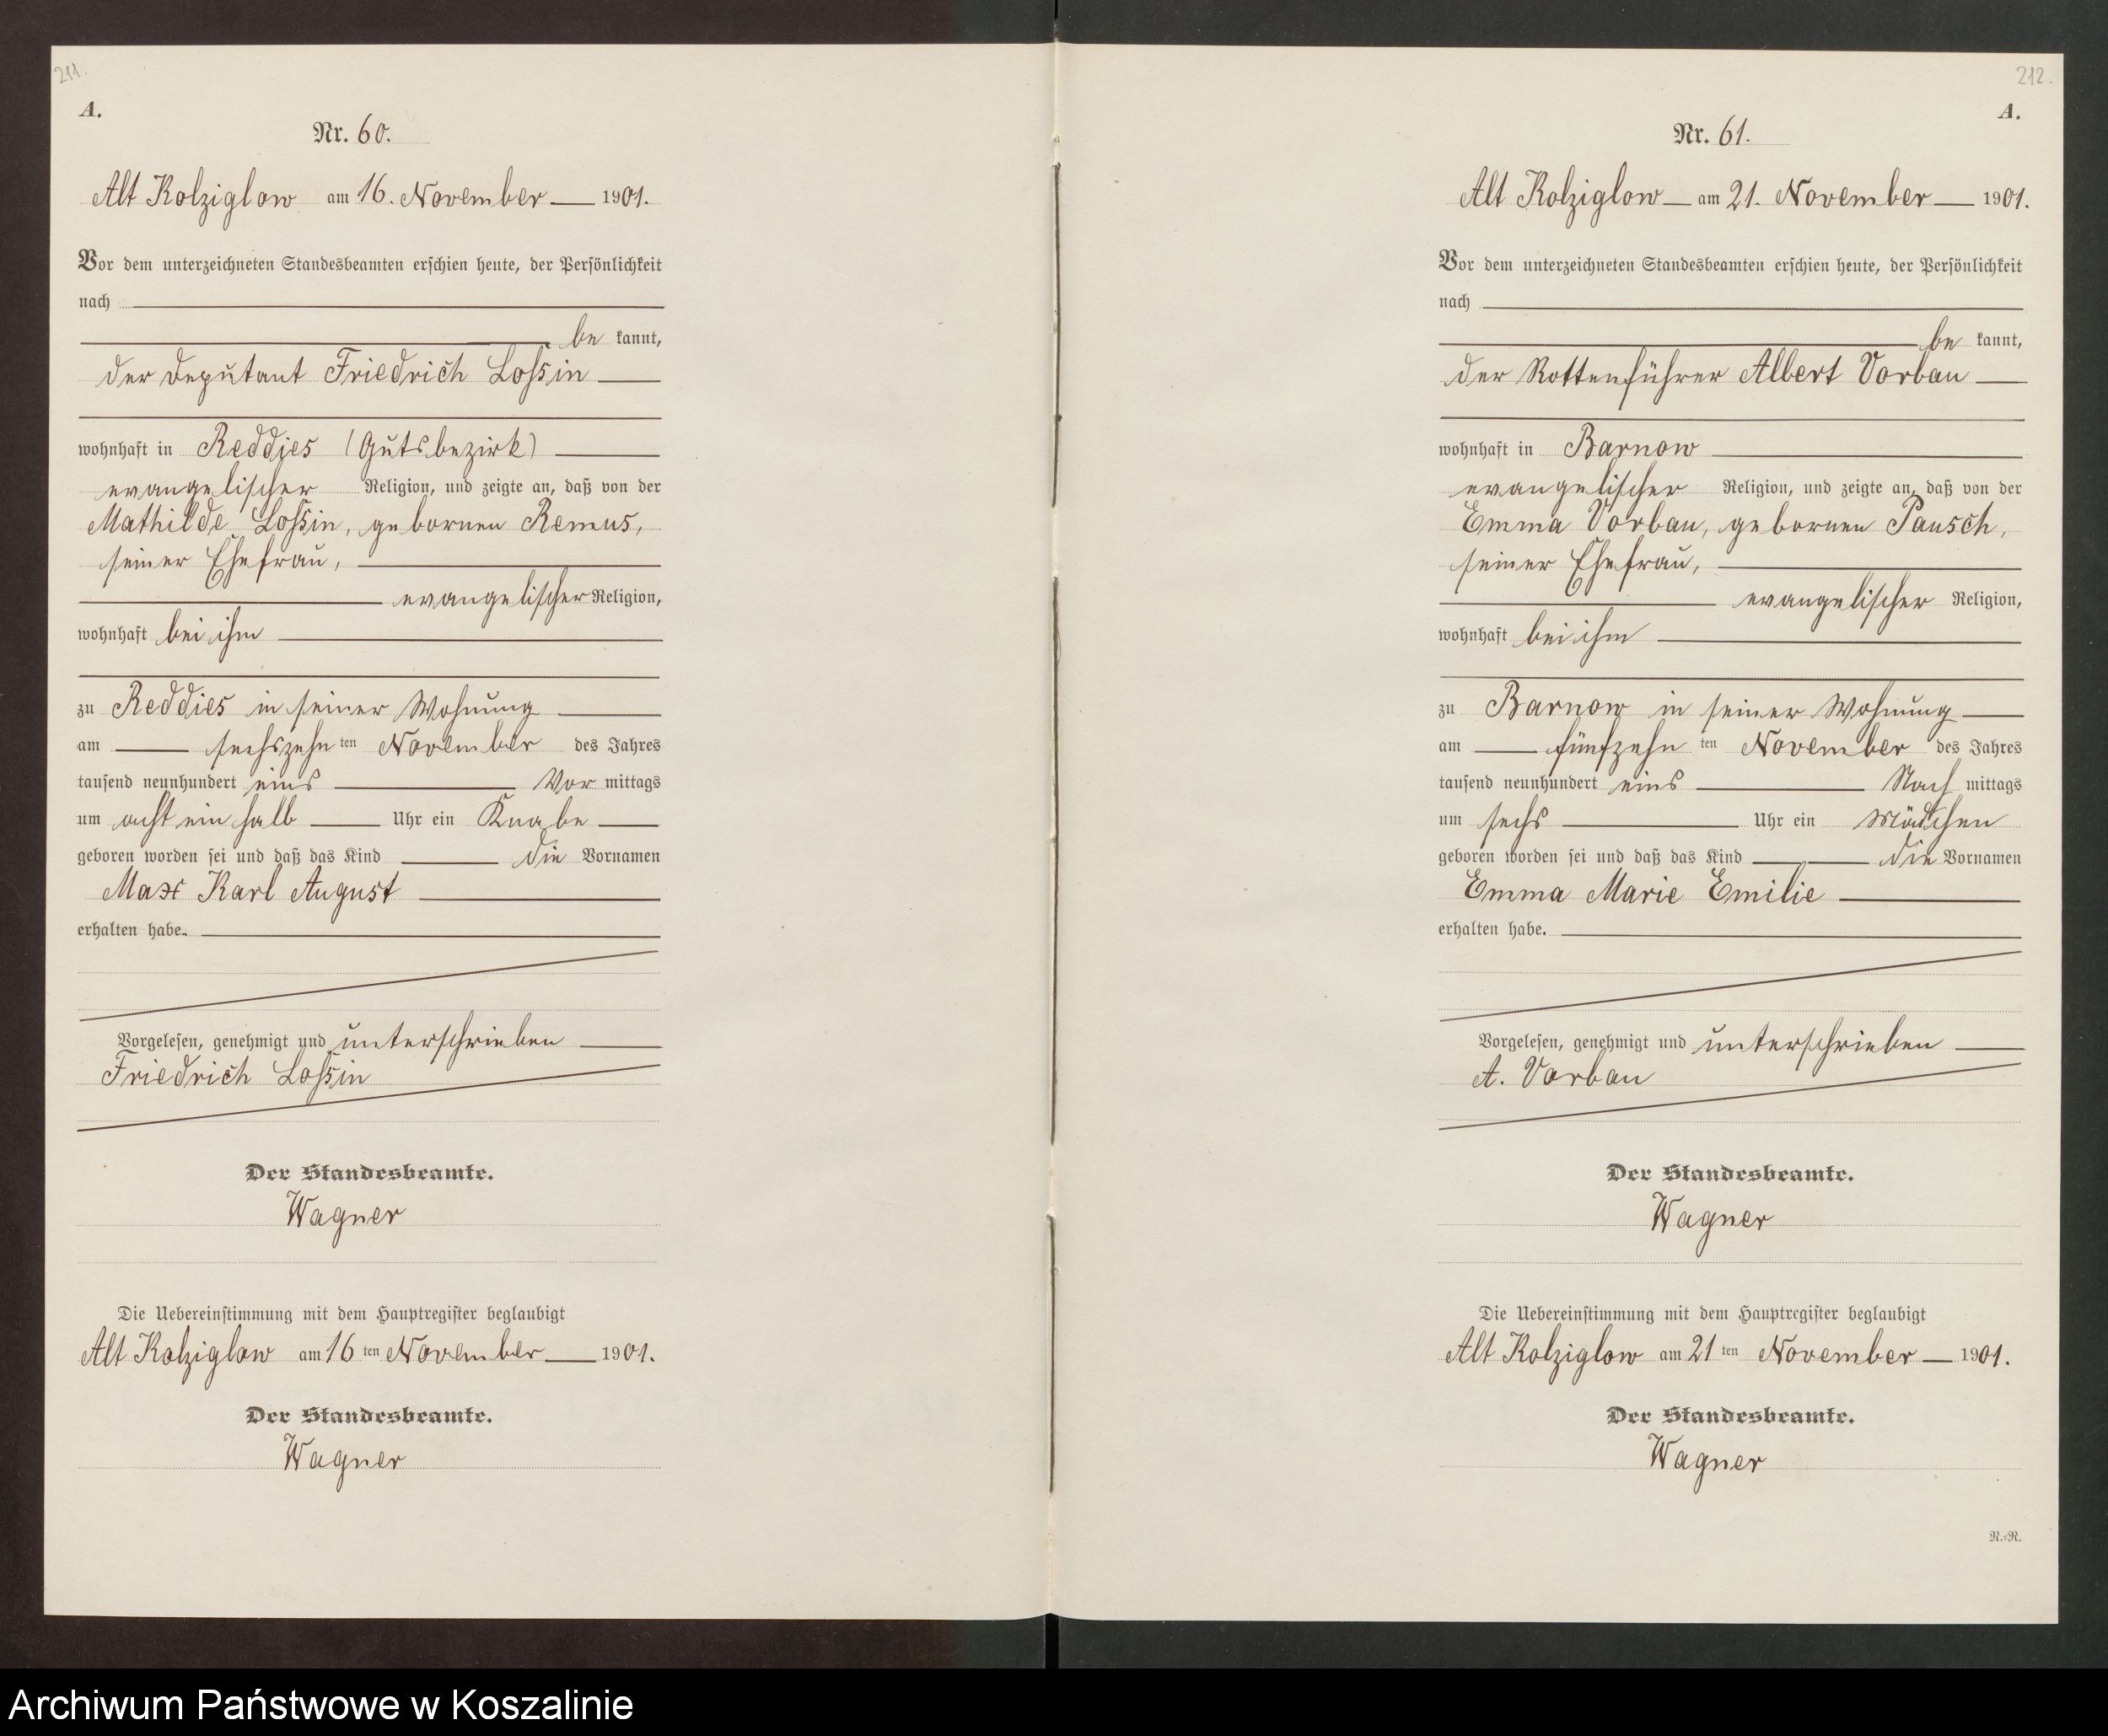 211.
A.
Nr. 60.
Alt Kolziglow am 16. November 1901.
Vor dem unterzeichneten Standesbeamten erschien heute, der Persönlichkeit
nach
be kannt,
der Deputant Friedrich Lossin
wohnhaft in Reddies (Gutsbezirk)
evangelischer Religion, und zeigte an, daß von der
Mathilde Lossin, gebornen Remus,
seiner Ehefrau,
evangelischer Religion,
wohnhaft bei ihm
zu Reddies in seiner Wohnung
am sechszehn ten November des Jahres
tausend neunhundert eins Vor mittags
um acht ein halb Uhr ein Knabe
geboren worden sei und daß das Kind die Vornamen
Max Karl August
erhalten habe.
Vorgelesen, genehmigt und unterschrieben
Friedrich Lossin
Der Standesbeamte.
Wagner
Die Uebereinstimmung mit dem Hauptregister beglaubigt
Alt Kolziglow am 16 ten November 1901.
Der Standesbeamte.
Wagner
212.
A.
Nr. 61.
Alt Kolziglow am 21. November 1901.
Vor dem unterzeichneten Standesbeamten erschien heute, der Persönlichkeit
nach
be kannt,
der Rottenführer Albert Vorbau
wohnhaft in Barnow
evangelischer Religion, und zeigte an, daß von der
Emma Vorbau, gebornen Pausch,
seiner Ehefrau,
evangelischer Religion,
wohnhaft bei ihm
zu Barnow in seiner Wohnung
am fünfzehn ten November des Jahres
tausend neunhundert eins Nach mittags
um sechs Uhr ein Mädchen
geboren worden sei und daß das Kind die Vornamen
Emma Marie Emilie
erhalten habe.
Vorgelesen, genehmigt und unterschrieben
A. Vorbau
Der Standesbeamte.
Wagner
Die Uebereinstimmung mit dem Hauptregister beglaubigt
Alt Kolziglow am 21 ten November 1901.
Der Standesbeamte.
Wagner
N.=N.
Archiwum Państwowe w Koszalinie